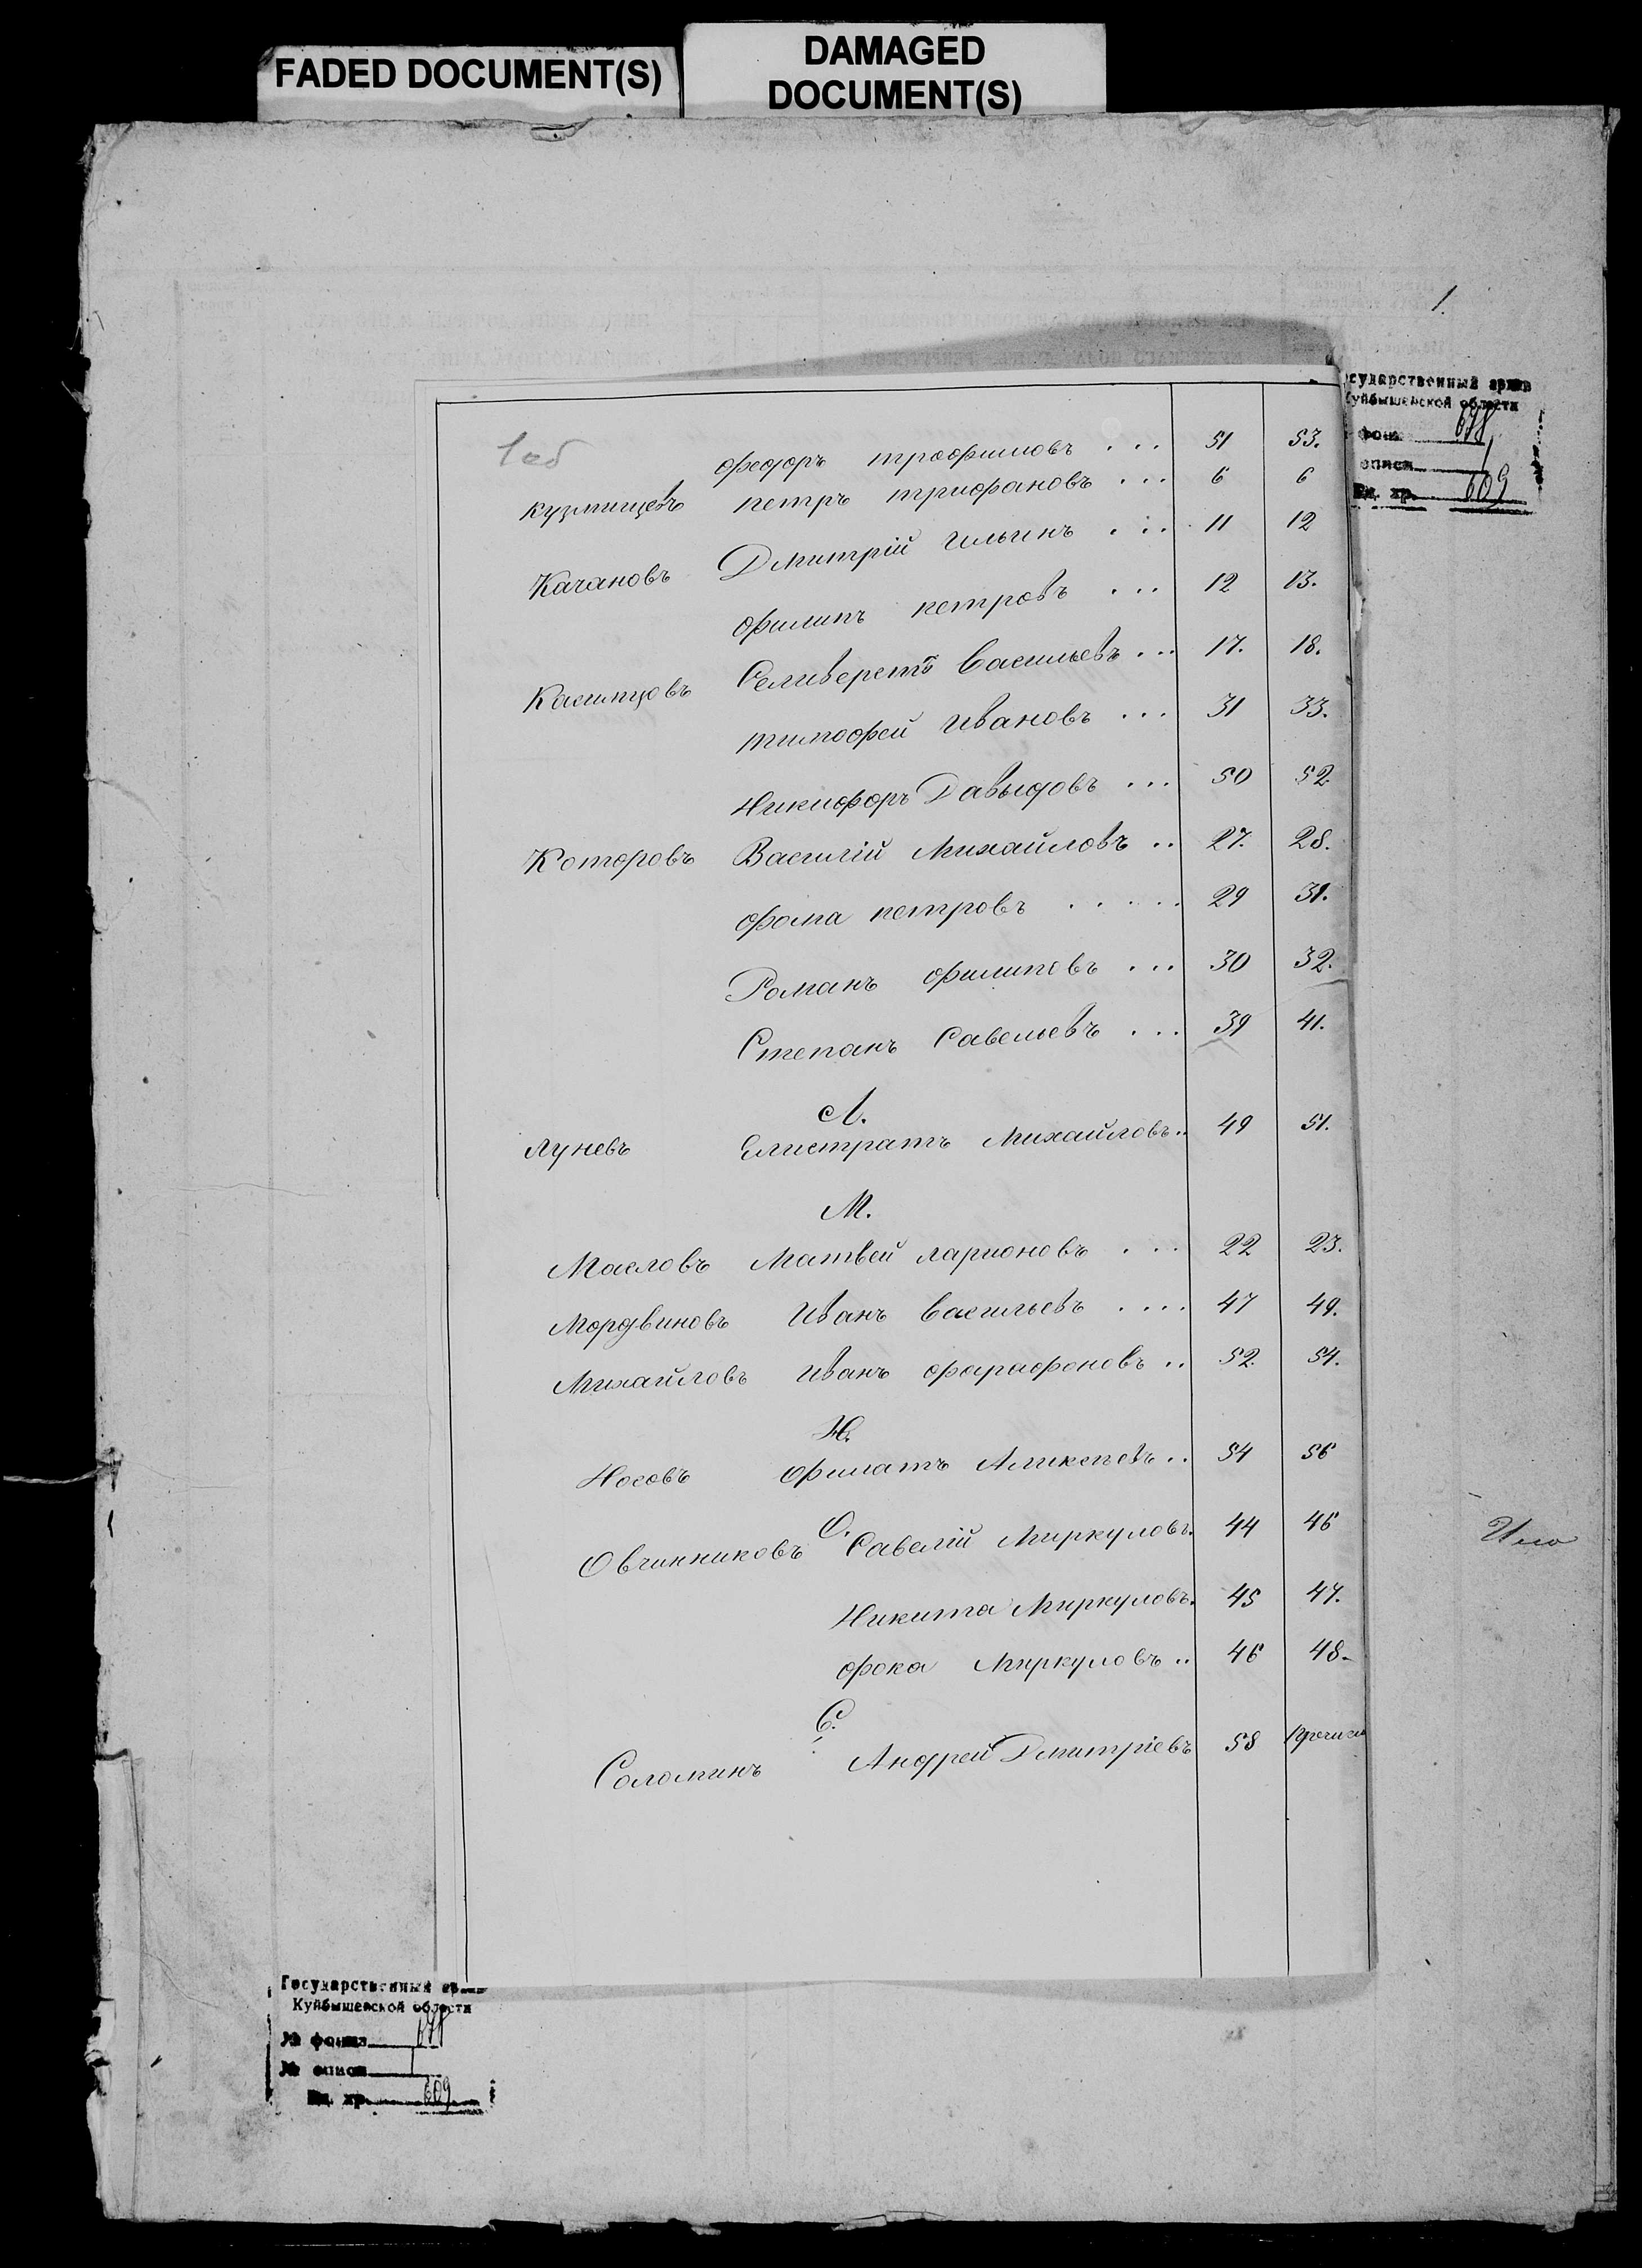 FADED DOCUMENT(S)
DAMAGED
DOCUMENT(S)
1.
Государственный архив
Куйбышевской области
фонд 678
описи 1
Ед. хр. 609
1об
федоръ трофимовъ . . . 51 53.
кузмищевъ петръ трифановъ . . . 6 6
Качановъ Дмитрій Ильинъ . . . 11 12
филипъ петровъ . . . 12 13.
Касимцовъ Селиверстъ Васильевъ . . . 17. 18.
тимофей Ивановъ . . . 31 33.
Никифоръ Давыдовъ . . . 50 52.
Которовъ Василій Михайловъ . . 27. 28.
фома петровъ . . . . . 29 31.
Романъ филиповъ . . . 30 32.
Степанъ Савельевъ . . . 39 41.
Л.
Луневъ Елистратъ Михайловъ . . 49 51.
М.
Масловъ Матвей ларионовъ . . . 22 23.
Мордвиновъ Иванъ Васильевъ . . . . 47 49.
Михайловъ Иванъ фарафоновъ . . 52. 54.
Н.
Носовъ филатъ Аликсеевъ . . 54 56
О.
Овчинниковъ Савелій Миркуловъ. 44 46
Никита Миркуловъ. 45 47.
фока Миркуловъ . . 46 48.
С.
Соломинъ Андрей Дмитріевъ 58
Государственный архив
Куйбышевской области
№ фонда 678
№ описи 1
Ед. хр. 609